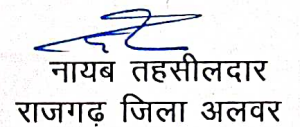 नायब तहसीलदार
राजगढ़ जिला अलवर